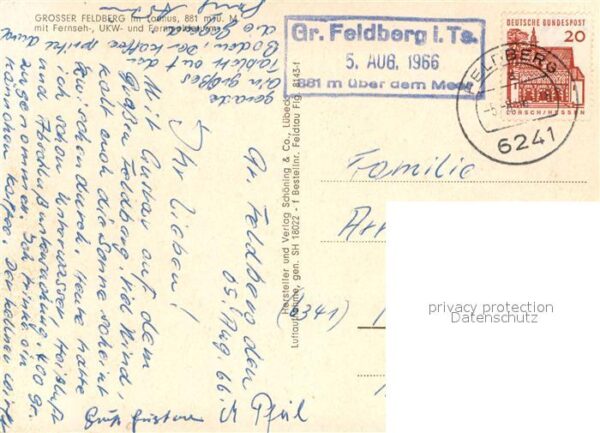 GROSSER FELDBERG im Taunus, 881 m ü. M.
mit Fernseh-, UKW- und Fernmeldeturm
Gr. Feldberg i. Ts.
5. AUG. 1966
881 m über dem Meer
DEUTSCHE BUNDESPOST
20
LORSCH/HESSEN
FELDBERG
6241
Gr. Feldberg den
05. Aug. 66.
Ihr Lieben!
Mit Gustav auf dem
Großen Feldberg. Viel Wind,
kalt auch die Sonne scheint
zuw. schon durch. Heute hatte
ich schon Unterwasser, Heißluft
und Abschlußuntersuchung. 400 gr.
zugenommen. Ich trinke ein
Kännchen Kaffee. Der Kellner wirft
gerade
ein großes
Tablett auf den
Boden, der Kaffee spritzt durch
die
Gruß Gustav
Hersteller und Verlag Schöning & Co., Lübeck
Luftaufnahme, gen. SH 18022 - f Bestellnr. Feldtau Flg. 8145-f
Familie
(6341)
privacy protection
Datenschutz